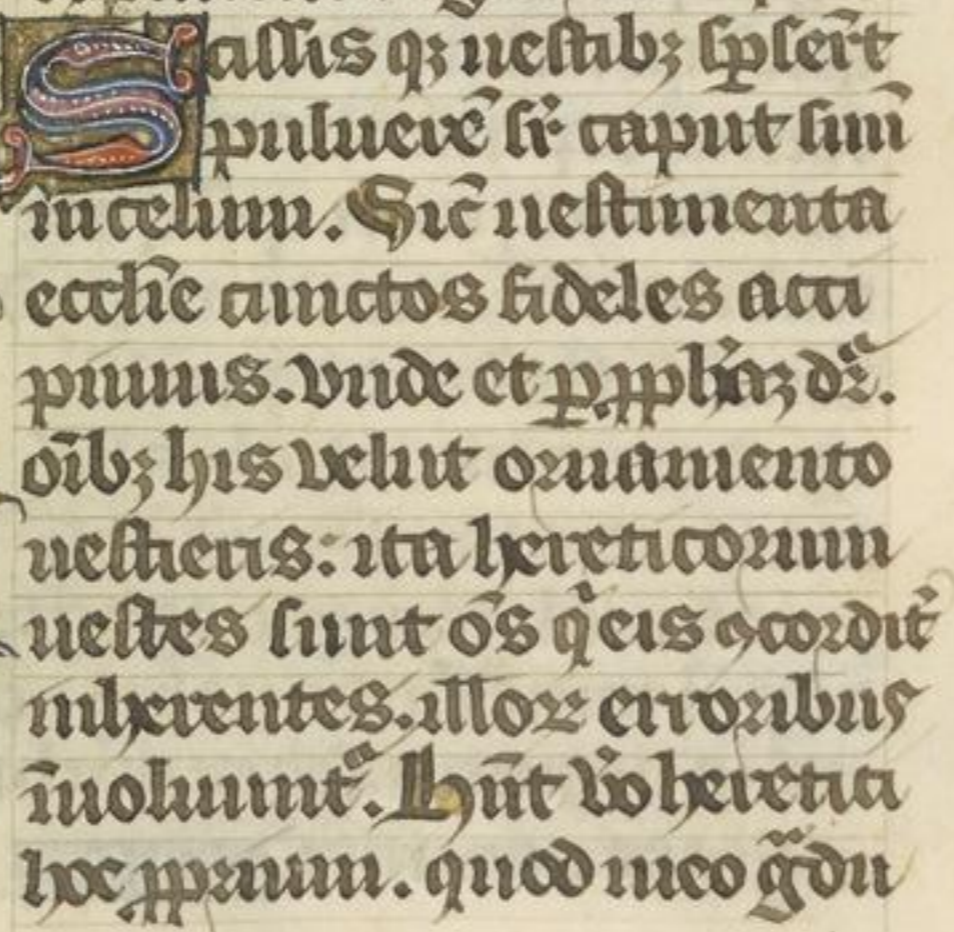 Scissis qꝫ uestibꝫ spͣserͭt
puluerē sr̄ caput suū
in celum. Sic̄ uestimenta
eccl̄ie cunctos fideles acci
pimus. vnde et ꝑ ꝓph̄iaꝫ dr̄.
oībꝫ his velut ornamento
uestieris: ita hereticorum
uestes sunt oēs qͥ eis ꝯcordit̾
inherentes. illoꝝ erroribus
īuoluunt᷑. Hn̄t v̾o heretici
hoc ꝓprium. quod in eo gͣdu